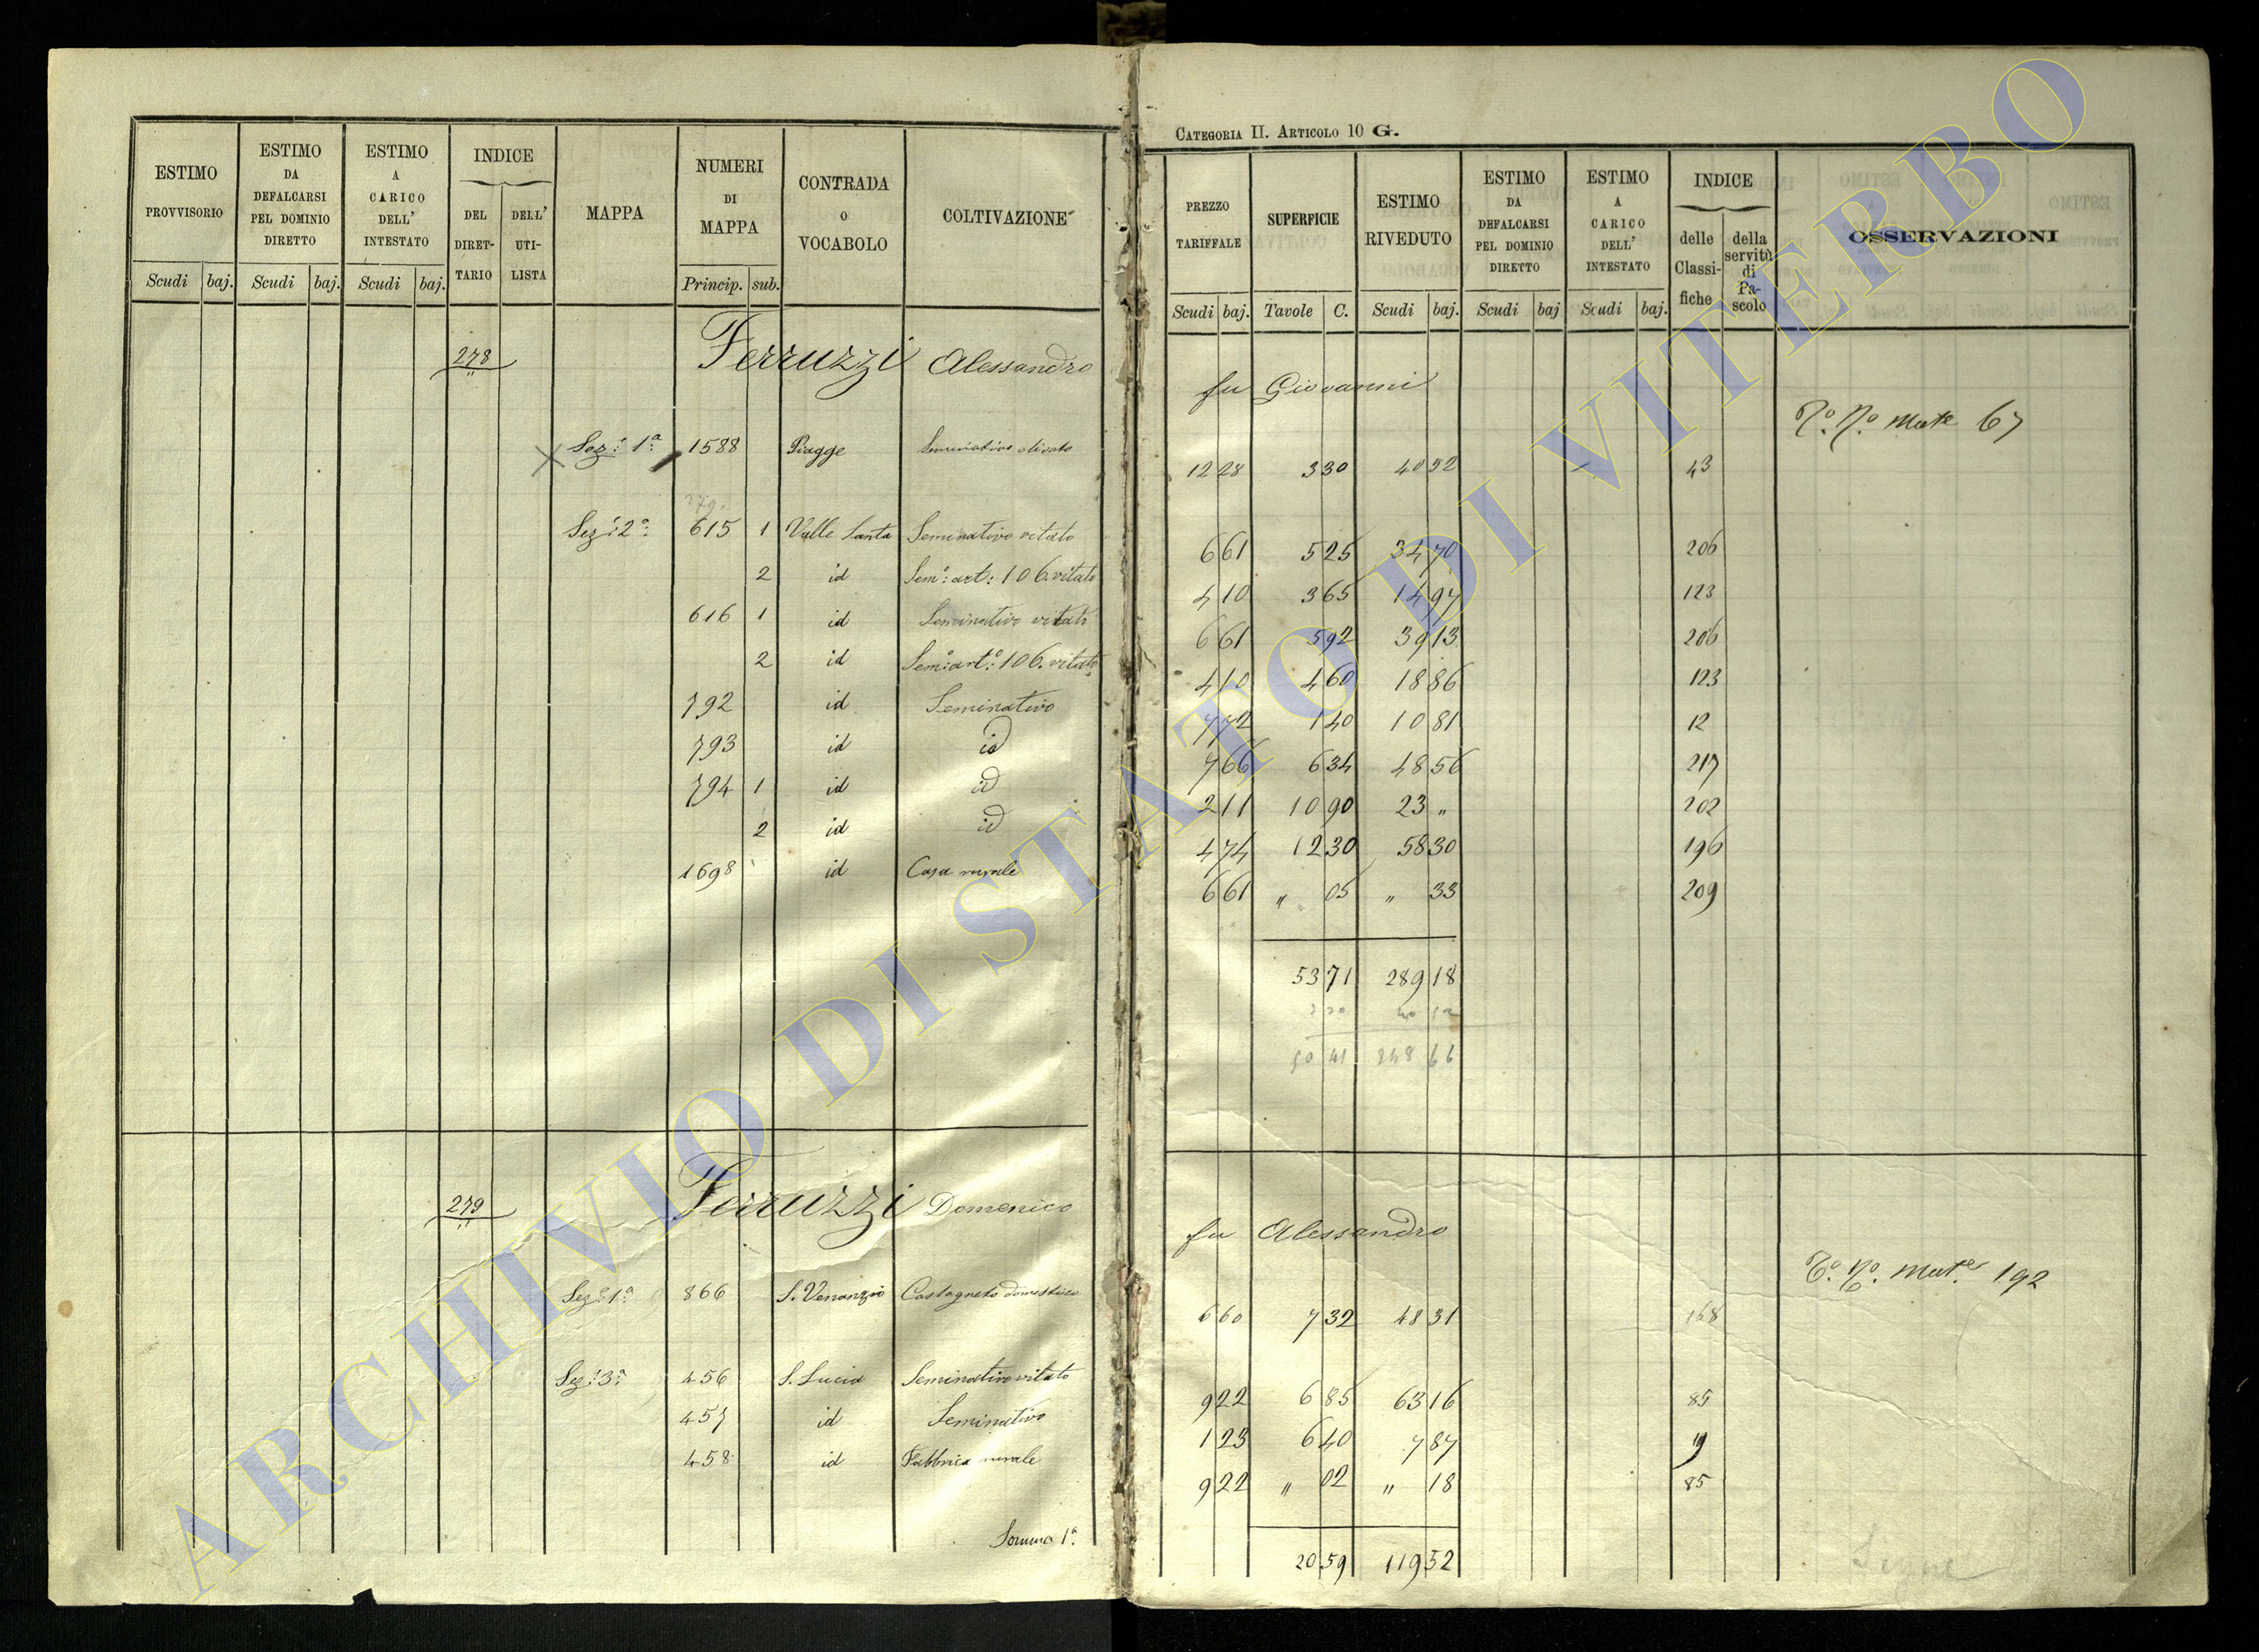 CATEGORIA II. ARTICOLO 10 G.
ESTIMO PROVVISORIO
Scudi baj.
ESTIMO DA DEFALCARSI PEL DOMINIO DIRETTO
Scudi baj.
ESTIMO A CARICO DELL' INTESTATO
Scudi baj.
INDICE
DEL DIRET-TARIO
DELL' UTI-LISTA
MAPPA
NUMERI DI MAPPA
Princip. sub.
CONTRADA O VOCABOLO
COLTIVAZIONE
PREZZO TARIFFALE
Scudi baj.
SUPERFICIE
Tavole C.
ESTIMO RIVEDUTO
Scudi baj.
ESTIMO DA DEFALCARSI PEL DOMINIO DIRETTO
Scudi baj
ESTIMO A CARICO DELL' INTESTATO
Scudi baj.
INDICE
delle Classi-fiche
della servitù di Pa-scolo
OSSERVAZIONI
278 Ferruzzi Alessandro fu Giovanni
Nº. Mute 67
Sez: 1ª 1588 Piagge Seminativo olivato 12 28 3 30 40 52 43
279
Sez: 2ª 615 1 Valle Santa Seminativo vitato 6 61 5 25 34 70 206
2 id Sem: art: 106. vitato 4 10 3 65 14 97 123
616 1 id Seminativo vitato 6 61 5 92 39 13 206
2 id Sem: art: 106. vitato 4 10 4 60 18 86 123
792 id Seminativo 7 72 1 40 10 81 12
793 id id 7 66 6 34 48 56 217
794 1 id id 2 11 10 90 23 " 202
2 id id 4 74 12 30 58 30 196
1698 id Casa rurale 6 61 " 05 " 33 209
53 71 289 18
3 30 40 52
50 41 248 66
279 Ferruzzi Domenico fu Alessandro
Nº. Mute 192
Sez: 1ª 866 S. Venanzio Castagneto domestico 6 60 7 32 48 31 168
Sez: 3ª 456 S. Lucia Seminativo vitato 9 22 6 85 63 16 85
457 id Seminativo 1 23 6 40 7 87 19
458 id Fabbrica rurale 9 22 " 02 " 18 85
Somma 1ª. 20 59 119 52
Segue
ARCHIVIO DI STATO DI VITERBO